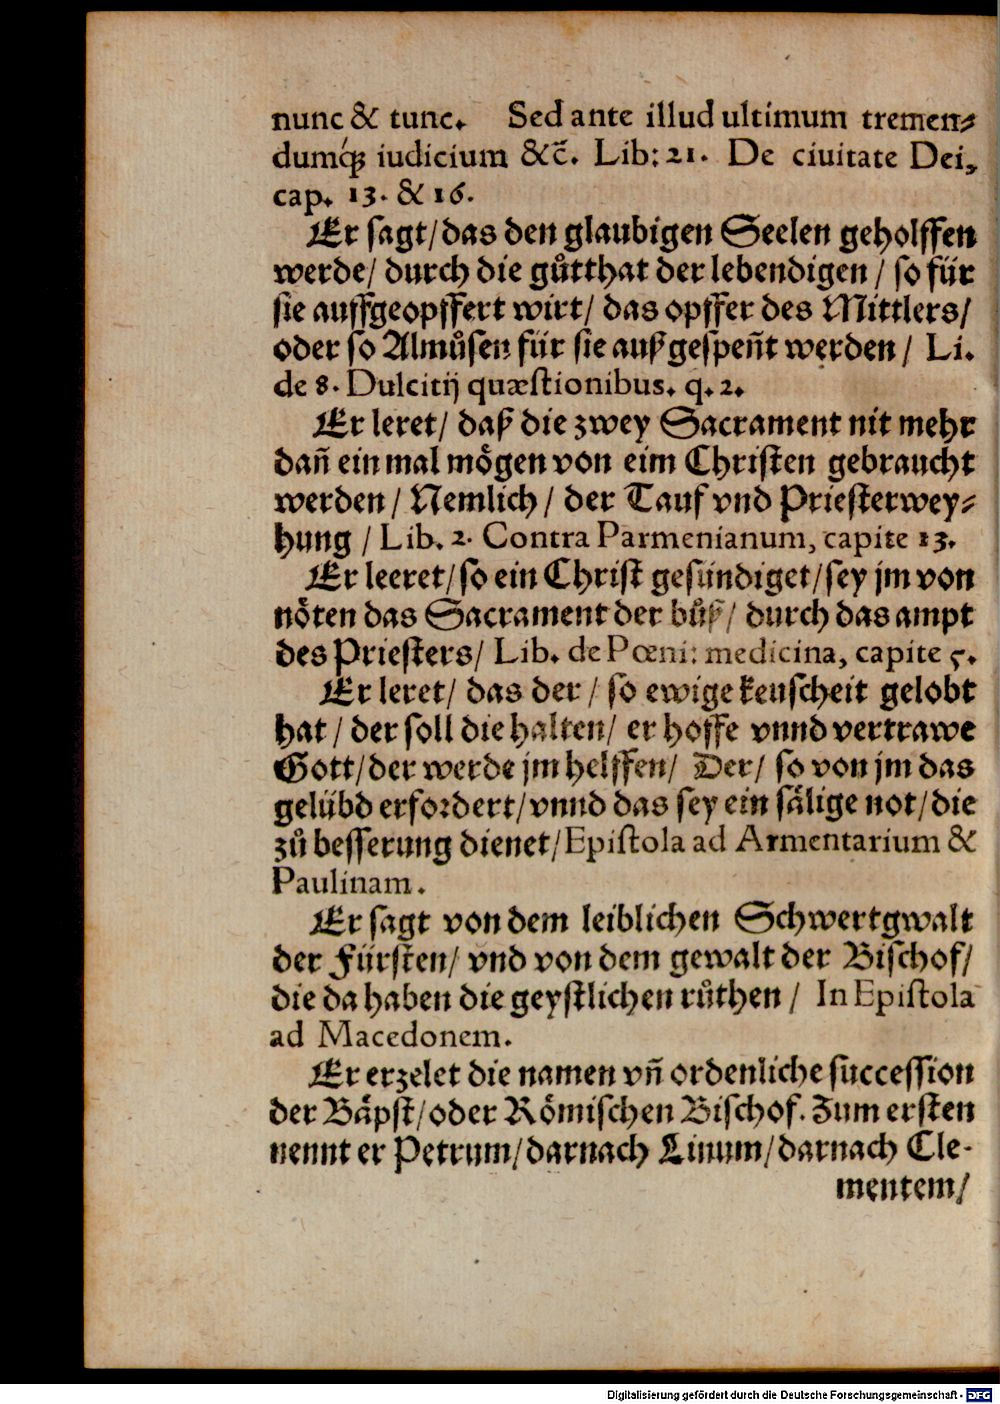 nunc & tunc. Sed ante illud ultimum tremen⸗
dumq́; iudicium &c̃. Lib: 21. De ciuitate Dei,
cap. 13. & 16.
Er sagt/ das den glaubigen Seelen geholffen
werde/ durch die gůtthat der lebendigen / so für
sie auffgeopffert wirt/ das opffer des Mittlers/
oder so Almůsen für sie außgespeñt werden / Li.
de 8. Dulcitij quæstionibus. q. 2.
Er leret/ daß die zwey Sacrament nit mehr
dañ ein mal mögen von eim Christen gebraucht
werden / Nemlich / der Tauf vnd Priesterwey⸗
hung / Lib. 2. Contra Parmenianum, capite 13.
Er leeret/ so ein Christ gesündiget/ sey jm von
nöten das Sacrament der bůß/ durch das ampt
des Priesters/ Lib. de Pœni: medicina, capite 5.
Er leret/ das der / so ewige keuscheit gelobt
hat / der soll die halten/ er hoffe vnnd vertrawe
Gott/ der werde jm helffen/ Der/ so von jm das
gelübd erfordert/ vnnd das sey ein sälige not/ die
zů besserung dienet/ Epistola ad Armentarium &
Paulinam.
Er sagt von dem leiblichen Schwertgwalt
der Fürsten/ vnd von dem gewalt der Bischof/
die da haben die geystlichen růthen / In Epistola
ad Macedonem.
Er erzelet die namen vñ ordenliche succession
der Bäpst/ oder Römischen Bischof. Zum ersten
nennt er Petrum/ darnach Linum/ darnach Cle-
mentem/
Digitalisierung gefördert durch die Deutsche Forschungsgemeinschaft - DFG